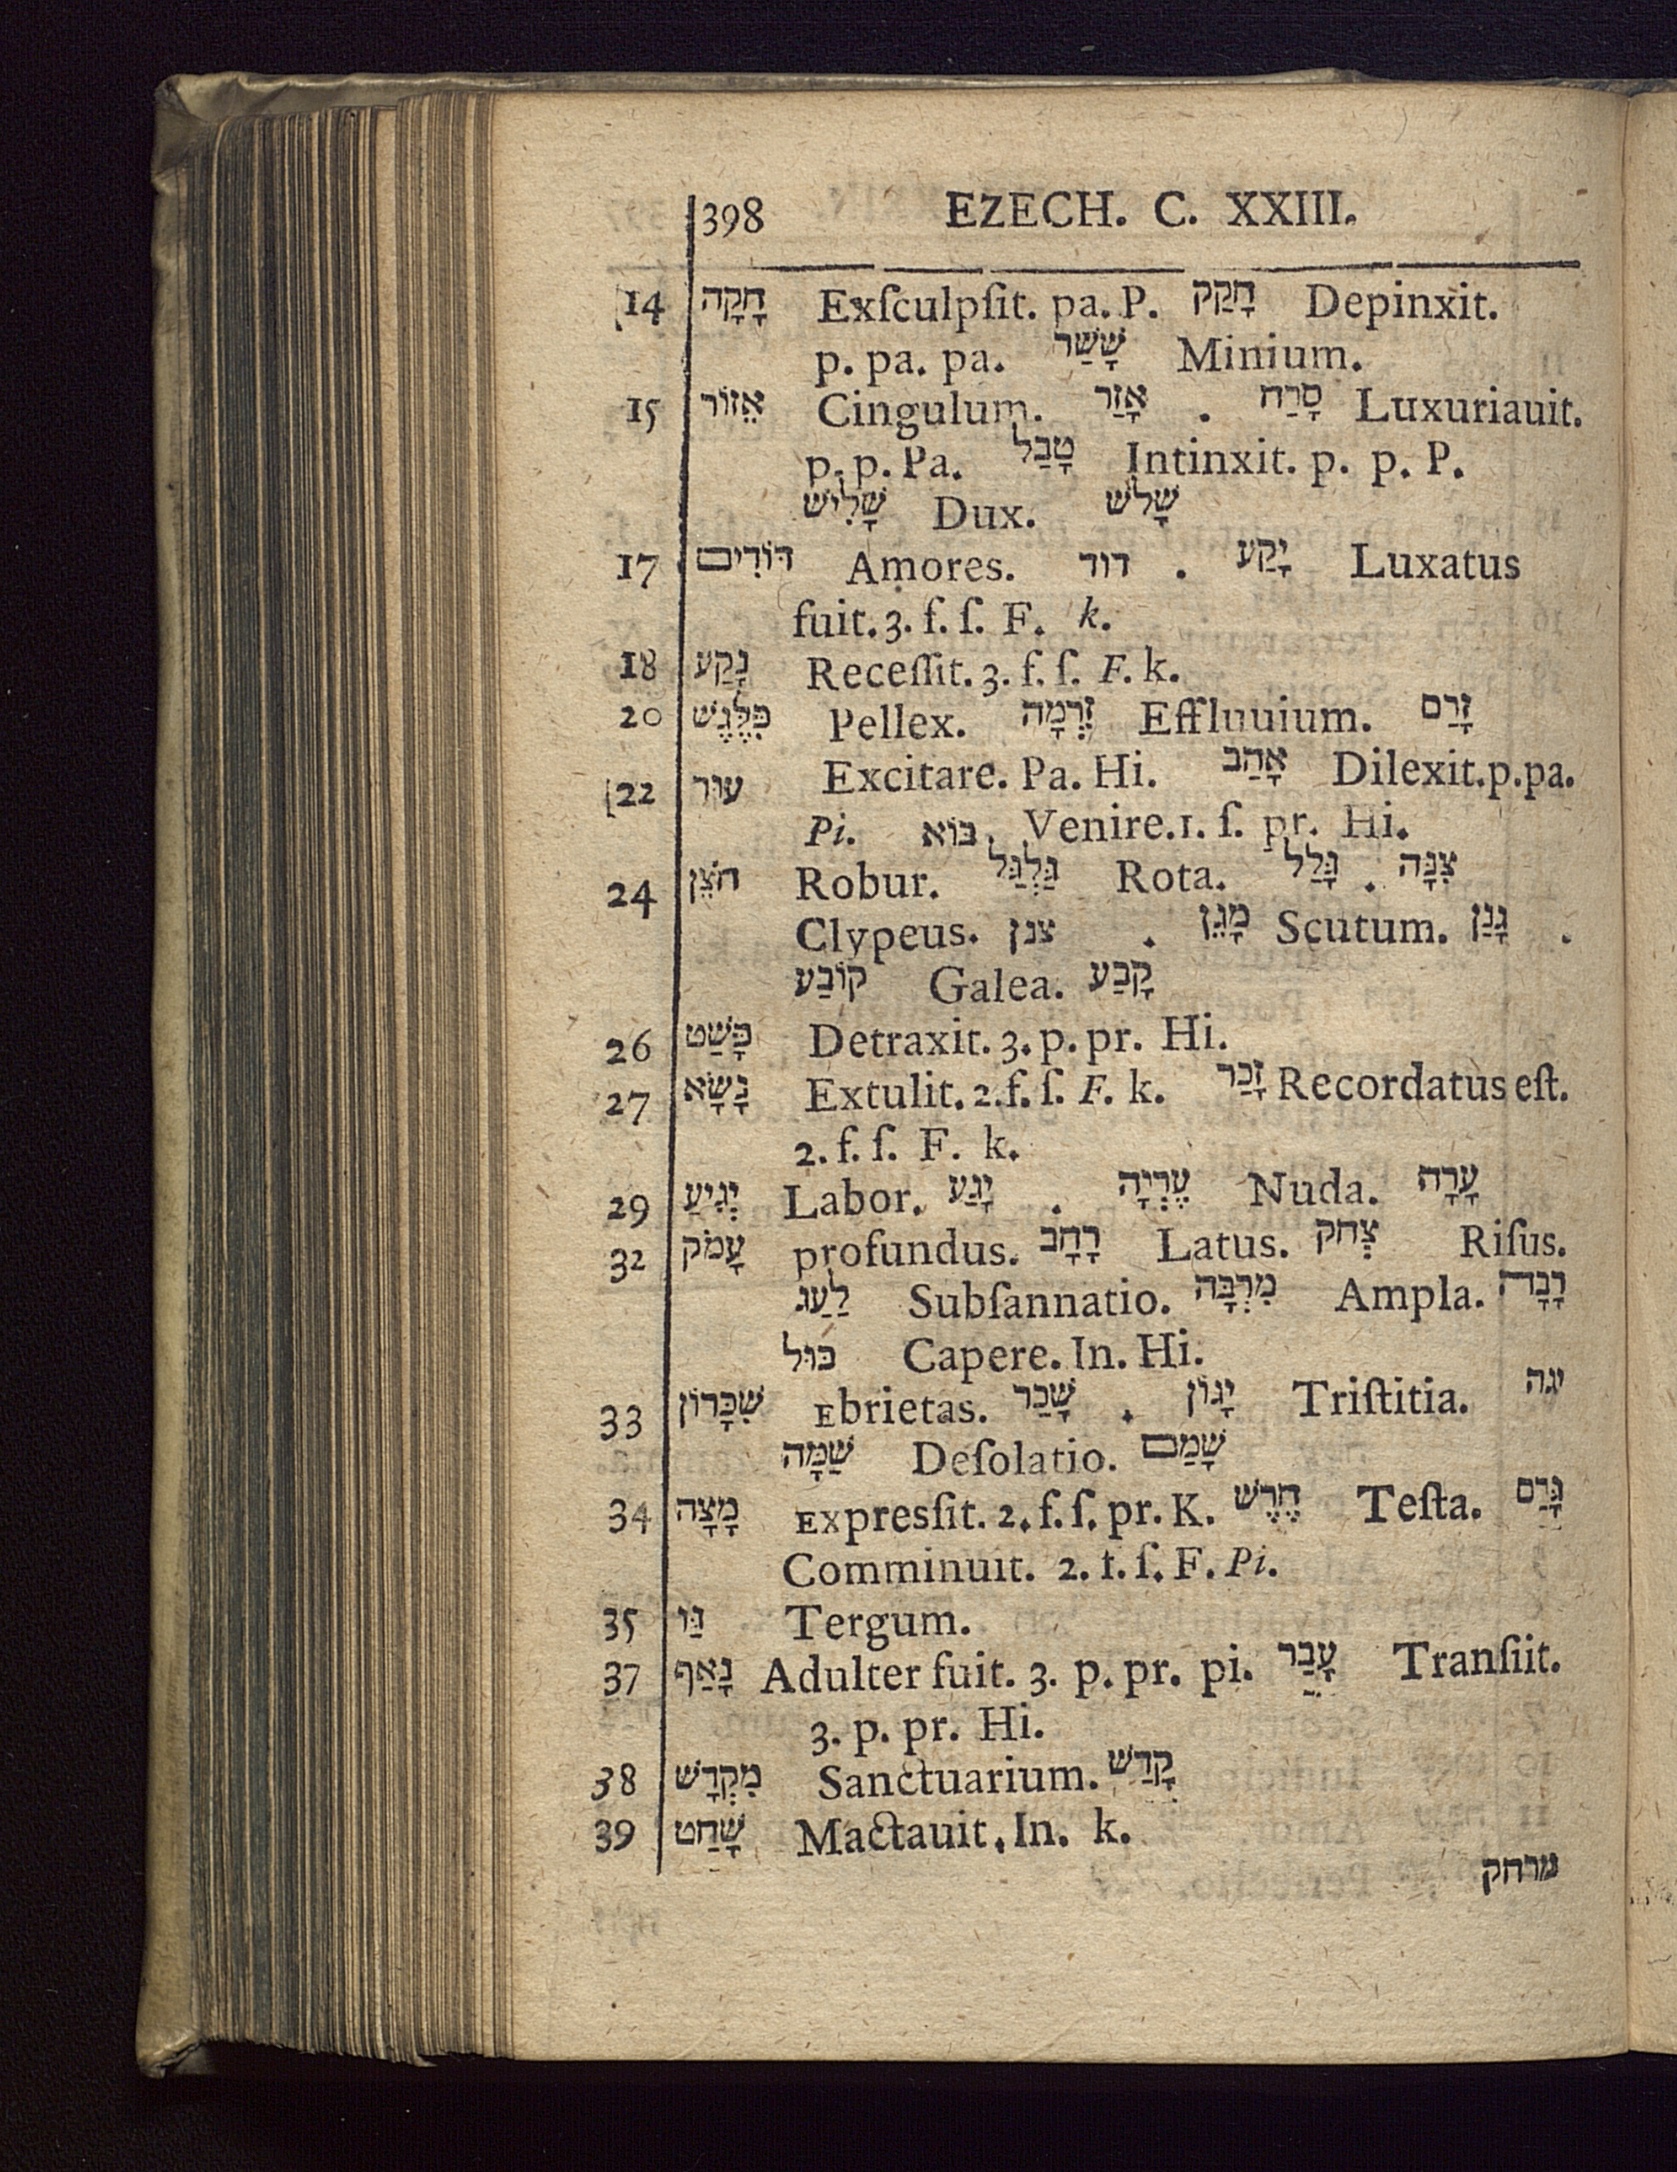 398 EZECH. C. XXIII.
14 חָקָה Exſculpſit. pa. P. חָקַק Depinxit.
p. pa. pa. שָׁשַׁר Minium.
15 אֵזוֹר Cingulum. אָזַר . סָרַח Luxuriauit.
p. p. Pa. טָבַל Intinxit. p. p. P.
שָׁלִישׁ Dux. שָׁלֹשׁ
17 דּוֹדִים Amores. דוד . יָקַע Luxatus
fuit. 3. f. ſ. F. k.
18 נָקַע Receſſit. 3. f. ſ. F. k.
20 פִּלֶּגֶשׁ Pellex. זִרְמָה Effluuium. זָרַם
22 עוּר Excitare. Pa. Hi. אָהַב Dilexit. p. pa.
Pi. בּוֹא. Venire. 1. ſ. pr. Hi.
24 חֹצֶן Robur. גַּלְגַּל Rota. גָּלַל . צִנָּה
Clypeus. צנן . מָגֵן Scutum. גָנַן .
קוֹבַע Galea. קָבַע
26 פָּשַׁט Detraxit. 3. p. pr. Hi.
27 נָשָׂא Extulit. 2. f. ſ. F. k. זָכַר Recordatus eſt.
2. f. ſ. F. k.
29 יְגִיעַ Labor. יָגַע . עֶרְיָה Nuda. עָרָה
32 עָמֹק profundus. רָחָב Latus. צְחֹק Riſus.
לַעַג Subſannatio. מִרְבָּה Ampla. רָבָה
כּוּל Capere. In. Hi.
33 שִׁכָּרוֹן Ebrietas. שָׁכַר . יָגוֹן Triſtitia. יגה
שַׁמָּה Deſolatio. שָׁמַם
34 מָצָה Expresſit. 2. f. ſ. pr. K. חֶרֶשׂ Teſta. גָּרַם
Comminuit. 2. f. ſ. F. Pi.
35 גַּו Tergum.
37 נָאַף Adulter fuit. 3. p. pr. pi. עָבַר Tranſiit.
3. p. pr. Hi.
38 מִקְדָּשׁ Sanctuarium. קָדַשׁ
39 שָׁחַט Mactauit. In. k.
מרחק